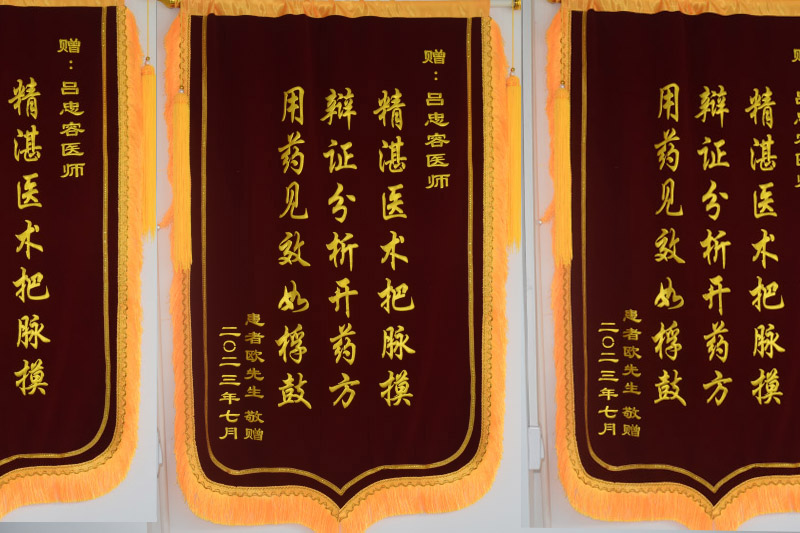 赠：吕忠容医师
精湛医术把脉摸
赠：吕忠容医师
精湛医术把脉摸
辩证分析开药方
用药见效如桴鼓
患者欧先生 敬赠
二〇二三年七月
精湛医术把脉摸
辩证分析开药方
用药见效如桴鼓
患者欧先生 敬赠
二〇二三年七月